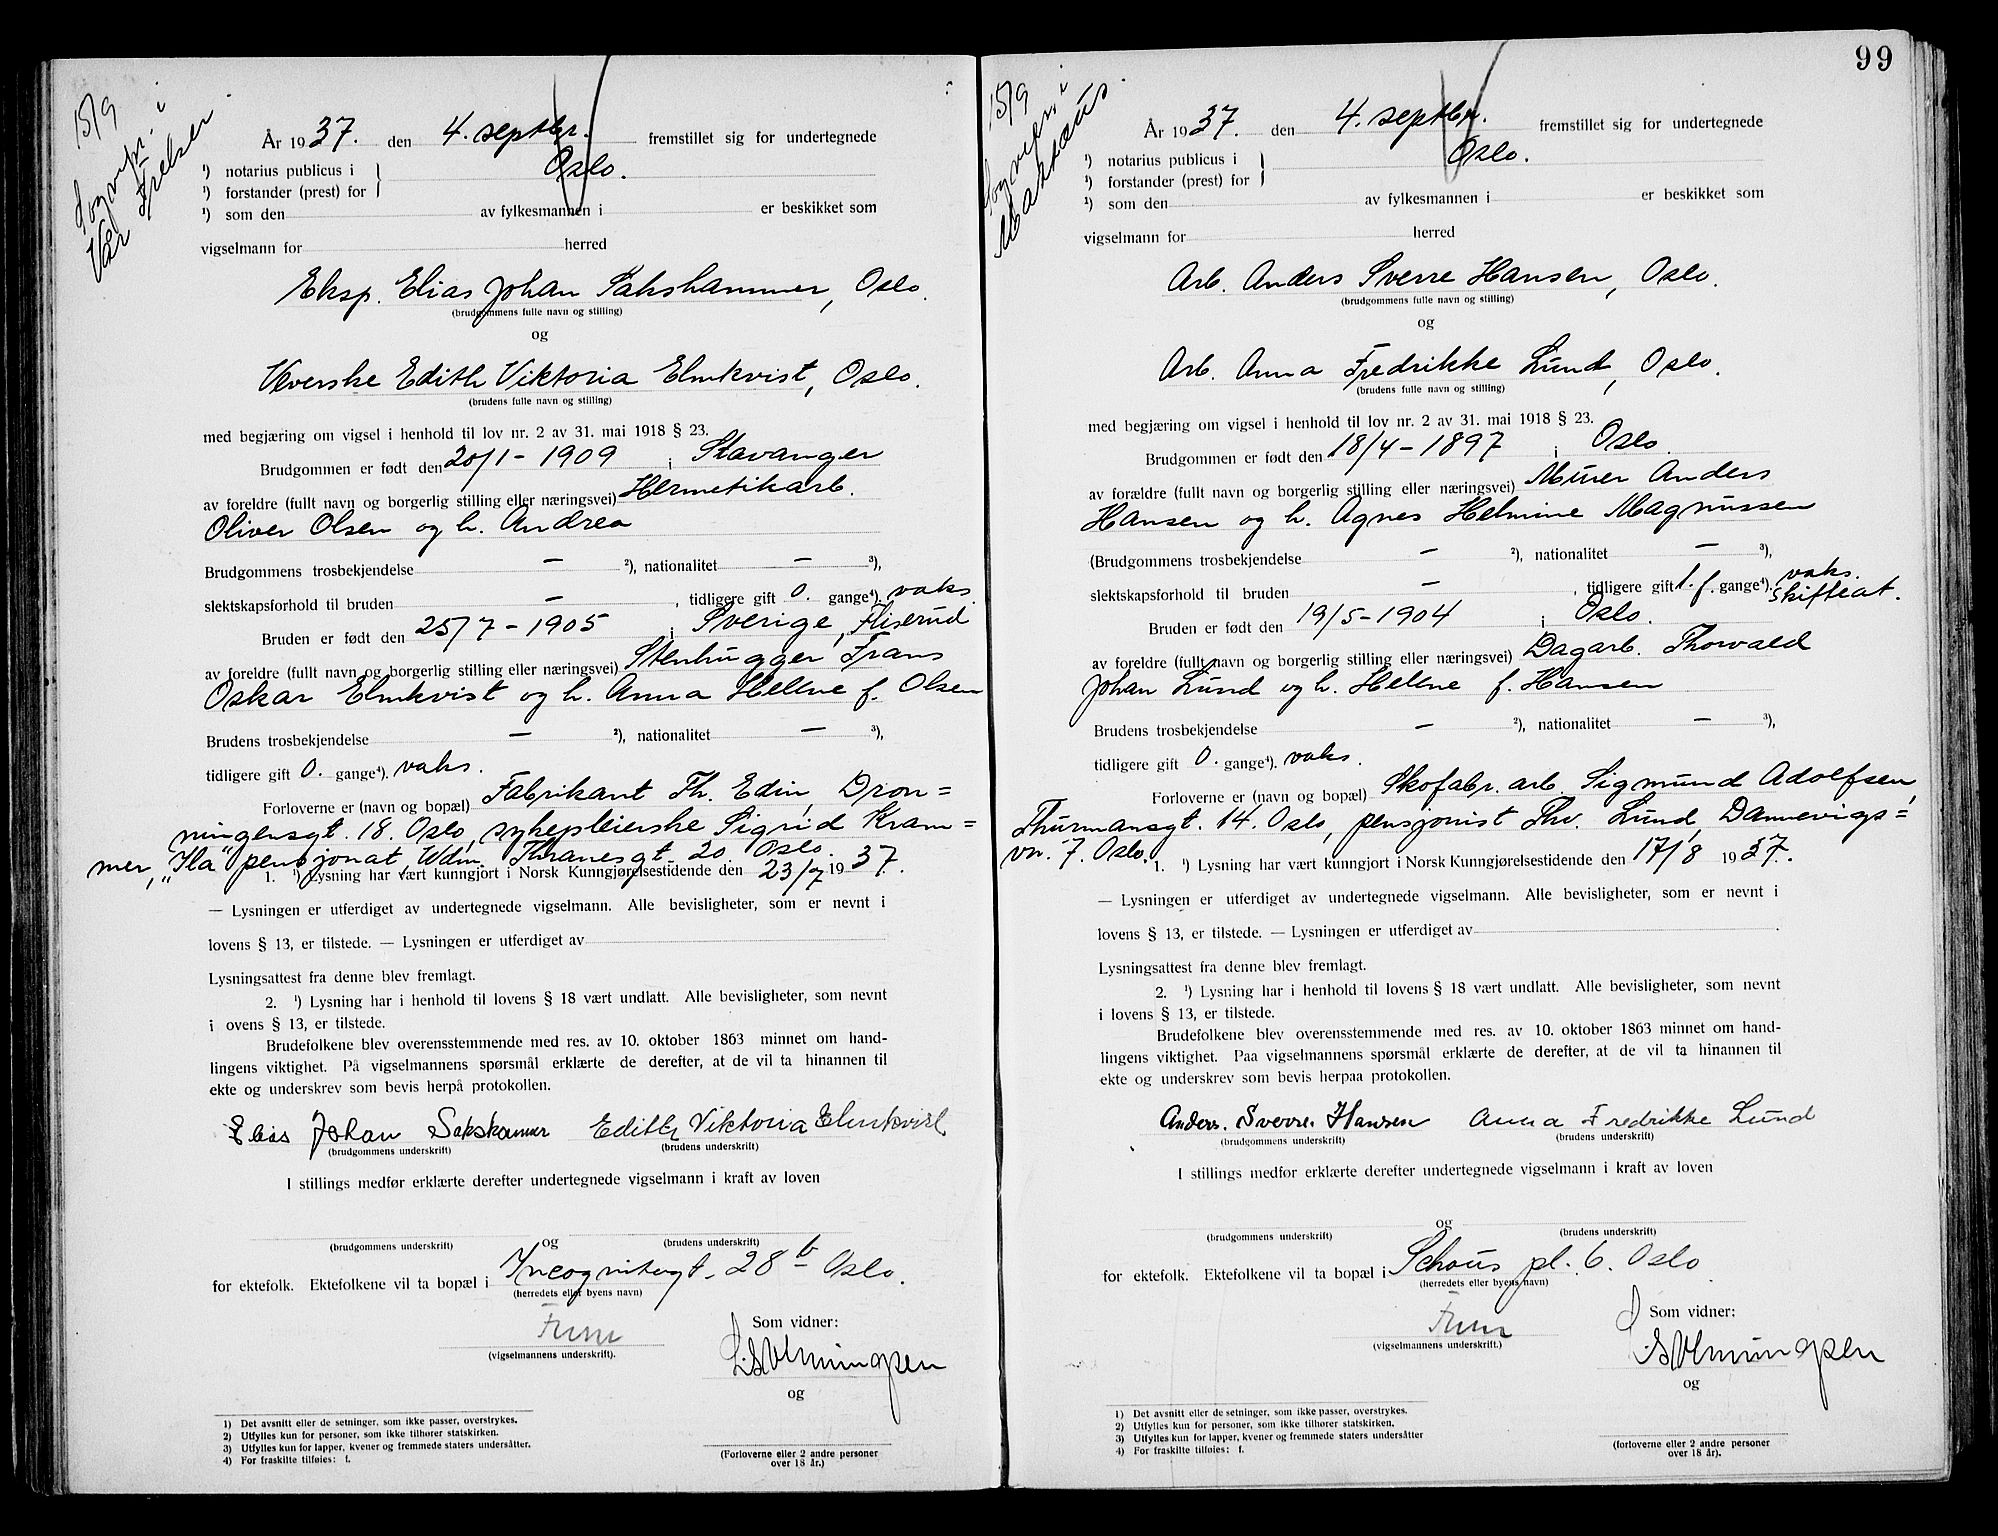 15/9
Sogneprest i
Vår Frelser
År 1937. den 4. septbr. fremstillet sig for undertegnede
¹) notarius publicus i
Oslo.
¹) forstander (prest) for
¹) som den av fylkesmannen i er beskikket som
vigselmann for herred
Eksp. Elias Johan Sakshammer, Oslo.
(brudgommens fulle navn og stilling)
og
Veverske Edith Viktoria Elmkvist, Oslo.
(brudens fulle navn og stilling)
med begjæring om vigsel i henhold til lov nr. 2 av 31. mai 1918 § 23.
Brudgommen er født den 20/1 - 1909 i Stavanger
av foreldre (fullt navn og borgerlig stilling eller næringsvei) Hermetikarb.
Oliver Olsen og h. Andrea
Brudgommens trosbekjendelse — ²), nationalitet — ³),
slektskapsforhold til bruden — , tidligere gift 0. gange⁴). vaks.
Bruden er født den 25/7 - 1905 i Sverige, Fliserud
av foreldre (fullt navn og borgerlig stilling eller næringsvei) Stenhugger Frans
Oskar Elmkvist og h. Anna Hellne f. Olsen
Brudens trosbekjendelse — ²), nationalitet — ³),
tidligere gift 0. gange⁴). vaks.
Forloverne er (navn og bopæl) Fabrikant Th. Edin, Dron=
ningensgt. 18. Oslo, sykepleierske Sigrid Kram=
mer, "Ila" pensjonat, Wdm. Thranesgt. 20. Oslo.
1. ¹) Lysning har vært kunngjort i Norsk Kunngjørelsestidende den 23/7 1937.
— Lysningen er utferdiget av undertegnede vigselmann. Alle bevisligheter, som er nevnt i
lovens § 13, er tilstede. — Lysningen er utferdiget av
Lysningsattest fra denne blev fremlagt.
2. ¹) Lysning har i henhold til lovens § 18 vært undlatt. Alle bevisligheter, som nevnt
i ovens § 13, er tilstede.
Brudefolkene blev overensstemmende med res. av 10. oktober 1863 minnet om hand-
lingens viktighet. På vigselmannens spørsmål erklærte de derefter, at de vil ta hinannen til
ekte og underskrev som bevis herpå protokollen.
Elias Johan Sakshammer Edith Viktoria Elmkvist
(brudgommens underskrift) (brudens underskrift)
I stillings medfør erklærte derefter undertegnede vigselmann i kraft av loven
og
(brudgommens underskrift) (brudens underskrift)
for ektefolk. Ektefolkene vil ta bopæl i Incognitogt. 28 b Oslo.
(herredets eller byens navn)
Som vidner:
(vigselmannens underskrift).
og
1) Det avsnitt eller de setninger, som ikke passer, overstrykes.
2) Utfylles kun for personer, som ikke tilhører statskirken.
3) Utfylles kun for lapper, kvener og fremmede staters undersåtter.
4) For fraskilte tilføies: f.
(Forloverne eller 2 andre personer
over 18 år.)
99
15/9
Sogneprest i
Markus
År 1937. den 4. septbr. fremstillet sig for undertegnede
¹) notarius publicus i
Oslo.
¹) forstander (prest) for
²) som den av fylkesmannen i er beskikket som
vigselmann for herred
Arb. Anders Sverre Hansen, Oslo.
(brudgommens fulle navn og stilling)
og
Arb. Anna Fredrikke Lund, Oslo.
(brudens fulle navn og stilling)
med begjæring om vigsel i henhold til lov nr. 2 av 31. mai 1918 § 23.
Brudgommen er født den 18/4 - 1897 i Oslo
av forældre (fullt navn og borgerlig stilling eller næringsvei) Murer Anders
Hansen og h. Agnes Helmine Magnussen
(Brudgommens trosbekjendelse — ²), nationalitet — ³),
slektskapsforhold til bruden — , tidligere gift 1. f. gange⁴). vaks.
skifteat.
Bruden er født den 19/5 - 1904 i Oslo.
av foreldre (fullt navn og borgerlig stilling eller næringsvei) Dagarb. Thorvald
Johan Lund og h. Hellne f. Hansen
Brudens trosbekjendelse — ²), nationalitet — ³),
tidligere gift 0. gange⁴). vaks.
Forloverne er (navn og bopæl) Skofabr. arb. Sigmund Adolfsen,
Thurmansgt. 14. Oslo, pensjonist Thv. Lund, Dannevigs=
vn. 7. Oslo.
1. ¹) Lysning har vært kunngjort i Norsk Kunngjørelsestidende den 17/8 1937.
— Lysningen er utferdiget av undertegnede vigselmann. Alle bevisligheter, som er nevnt i
lovens § 13, er tilstede. — Lysningen er utferdiget av
Lysningsattest fra denne blev fremlagt.
2. ¹) Lysning har i henhold til lovens § 18 vært undlatt. Alle bevisligheter, som nevnt
i lovens § 13, er tilstede.
Brudefolkene blev overensstemmende med res. av 10. oktober 1863 minnet om hand-
lingens viktighet. Paa vigselmannens spørsmål erklærte de derefter, at de vil ta hinannen til
ekte og underskrev som bevis herpaa protokollen.
Anders. Sverre. Hansen Anna Fredrikke Lund
(brudgommens underskrift) (brudens underskrift)
I stillings medfør erklærte derefter undertegnede vigselmann i kraft av loven
og
(brudgommens underskrift) (brudens underskrift)
for ektefolk. Ektefolkene vil ta bopæl i Schous pl. 6. Oslo
(herredets eller byens navn)
Som vidner:
(vigselmannens underskrift.)
og
1) Det avsnitt eller de setninger, som ikke passer, overstrykes.
2) Utfylles kun for personer, som ikke tilhører statskirken.
3) Utfylles kun for lapper, kvener og fremmede staters undersåtter
4) For fraskilte tilføies: f.
(forloverne eller 2 andre personer
over 18 år).